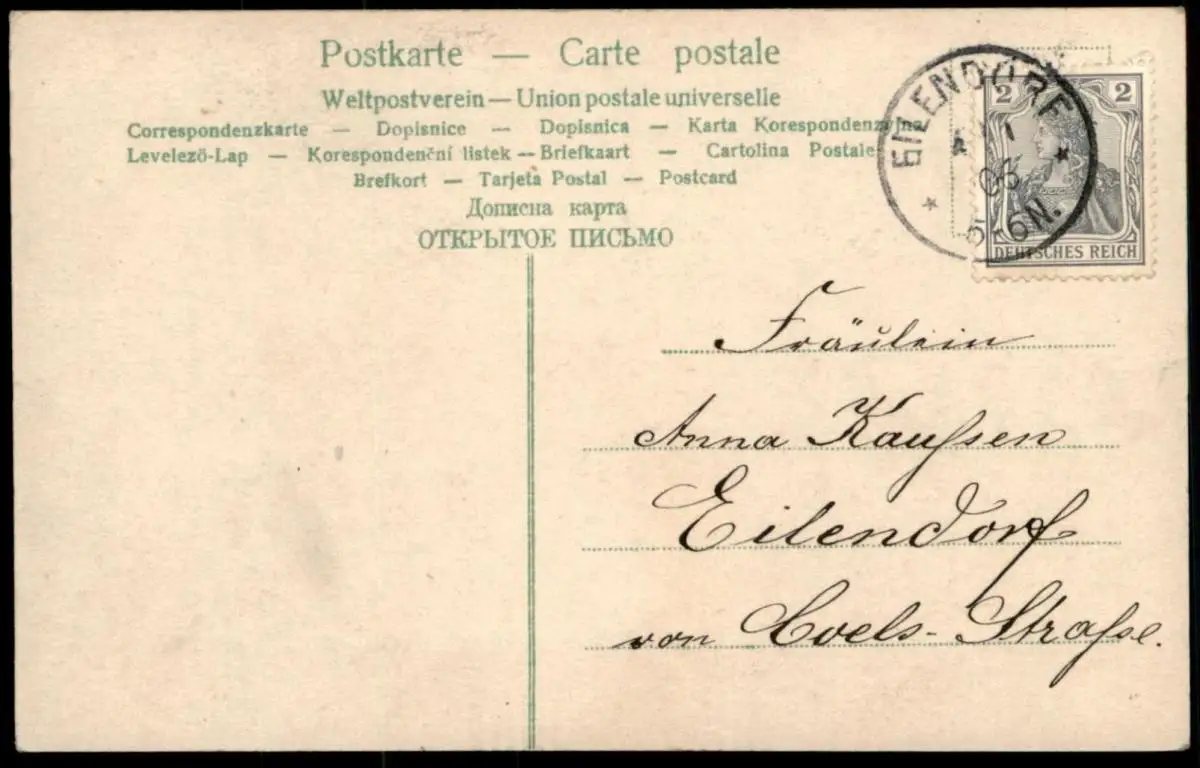 Postkarte — Carte postale
Weltpostverein — Union postale universelle
Correspondenzkarte — Dopisnice — Dopisnica — Karta Korespondenzyjna
Levelező-Lap — Korespondenční listek — Briefkaart — Cartolina Postale
Brefkort — Tarjeta Postal — Postcard
Дописна карта
ОТКРЫТОЕ ПИСЬМО
EILENDORF
06
5-6N.
2 2
DEUTSCHES REICH
Fräulein
Anna Kaufsen
Eilendorf
von Coels-Straße.